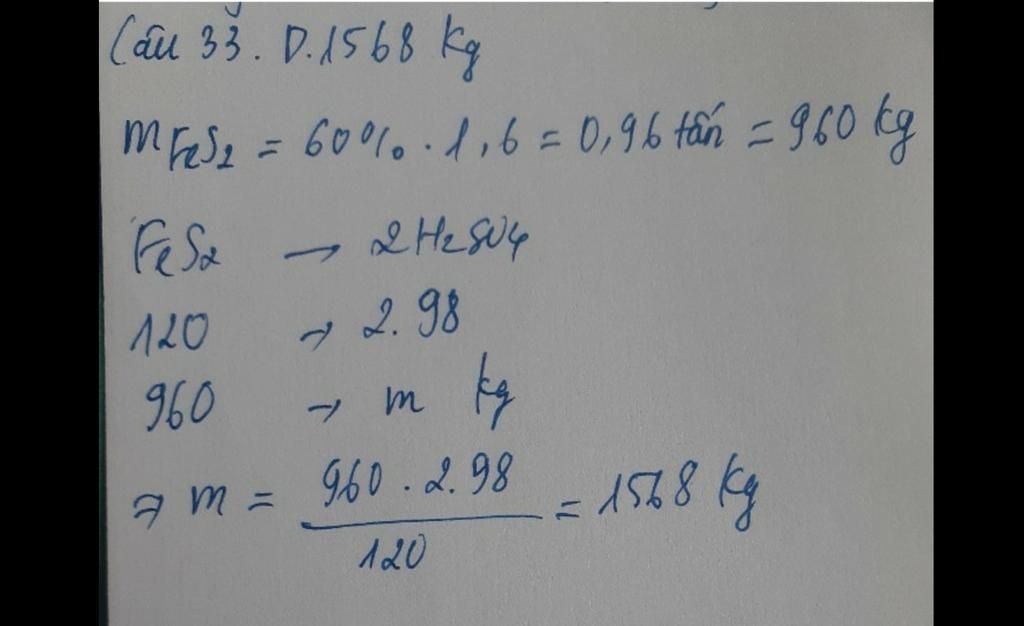 Câu 33. D.1568 kg
mFeS2 = 60%.1,6 = 0,96 tấn = 960 kg
FeS2 → 2H2SO4
120 → 2.98
960 → m kg
⇒ m = 960.2.98 / 120 = 1568 kg